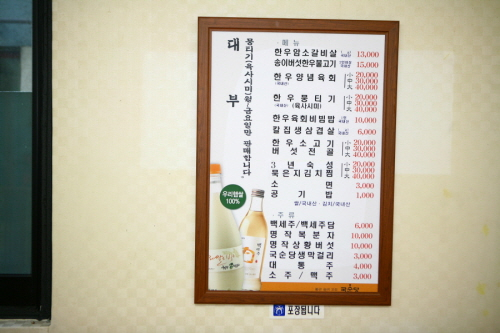 대부
뭉티기(육사시미)월~금요일만 판매합니다.
· 메뉴 ·
한우암소갈비살 13,000
송이버섯한우불고기 15,000
한우양념육회 小 20,000
中 30,000
大 40,000
한우뭉티기 小 20,000
(육사시미) 中 30,000
大 40,000
한우육회비빔밥 10,000
칼집생삼겹살 6,000
한우소고기 小 20,000
버섯전골 中 30,000
大 40,000
3년숙성 小 20,000
묵은지김치찜 中 30,000
大 40,000
소면 3,000
공기밥 1,000
쌀/국내산 · 김치/국내산
· 주류 ·
백세주/백세주담 6,000
명작복분자 10,000
명작상황버섯 10,000
국순당생막걸리 3,000
대통주 4,000
소주/맥주 3,000
국순당
우리햅쌀
100%
포장됩니다